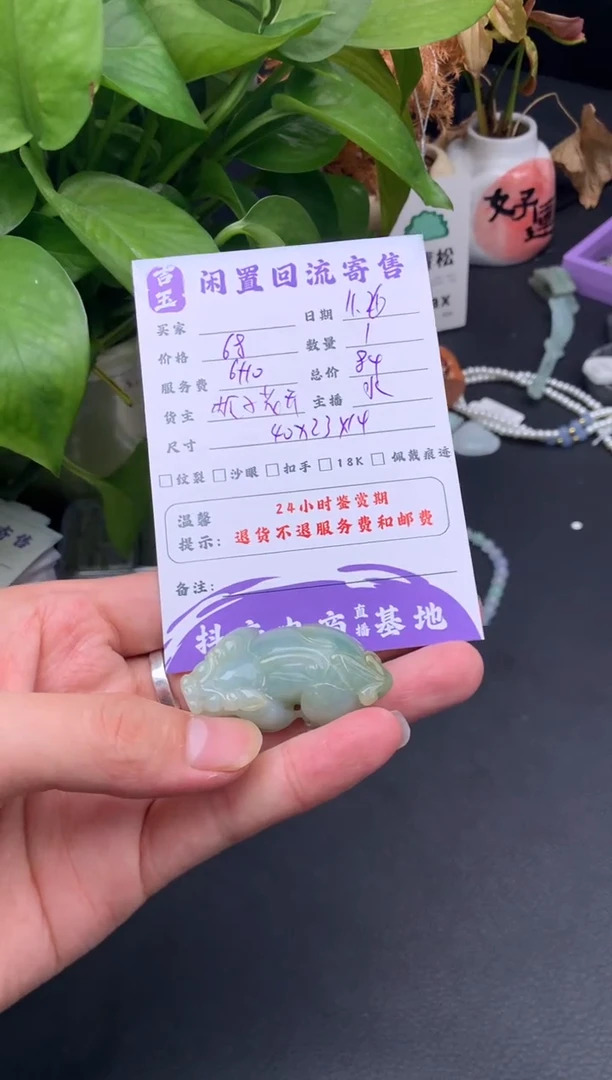 吉玉
闲置回流寄售
买家 日期 11.26
价格 68 数量 1
服务费 6+10 总价 84
货主 主播
尺寸 40X23X14
□纹裂 □沙眼 □扣手 □18K □佩戴痕迹
温馨提示: 24小时鉴赏期
退货不退服务费和邮费
备注:
直播基地
女子
松
寄售